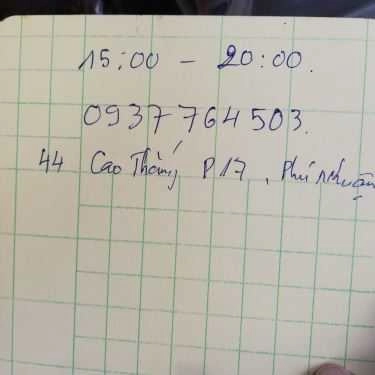 15:00 - 20:00.
0937764503.
44 Cao Thắng P17, Phú Nhuận